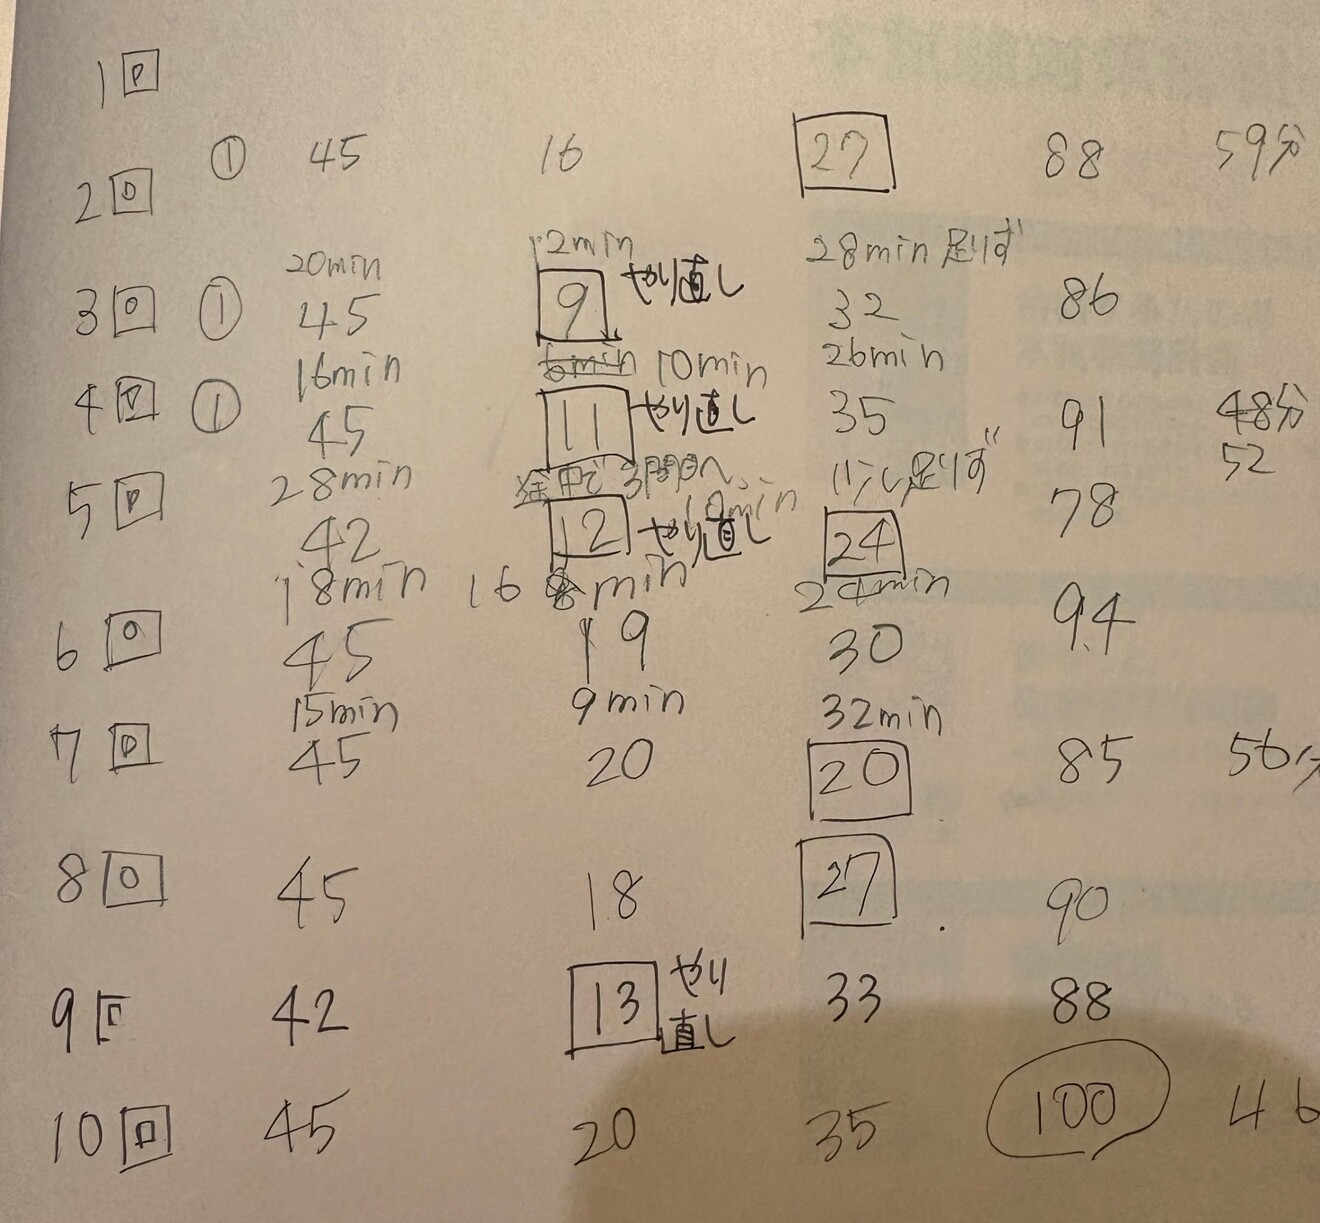 1回
① 45 16 27 88 59分
2回
20min 12min 28min 足りず
3回 ① 45 9 やり直し 32 86
16min 6min 10min 26min
4回 ① 45 11 やり直し 35 91 48分
52
28min 途中で3問目へ、10min 少し足りず
5回 42 12 やり直し 24 78
18min 16 min 24min
6回 45 19 30 94
15min 9min 32min
7回 45 20 20 85 56分
8回 45 18 27 90
9回 42 13 やり直し 33 88
10回 45 20 35 100 46